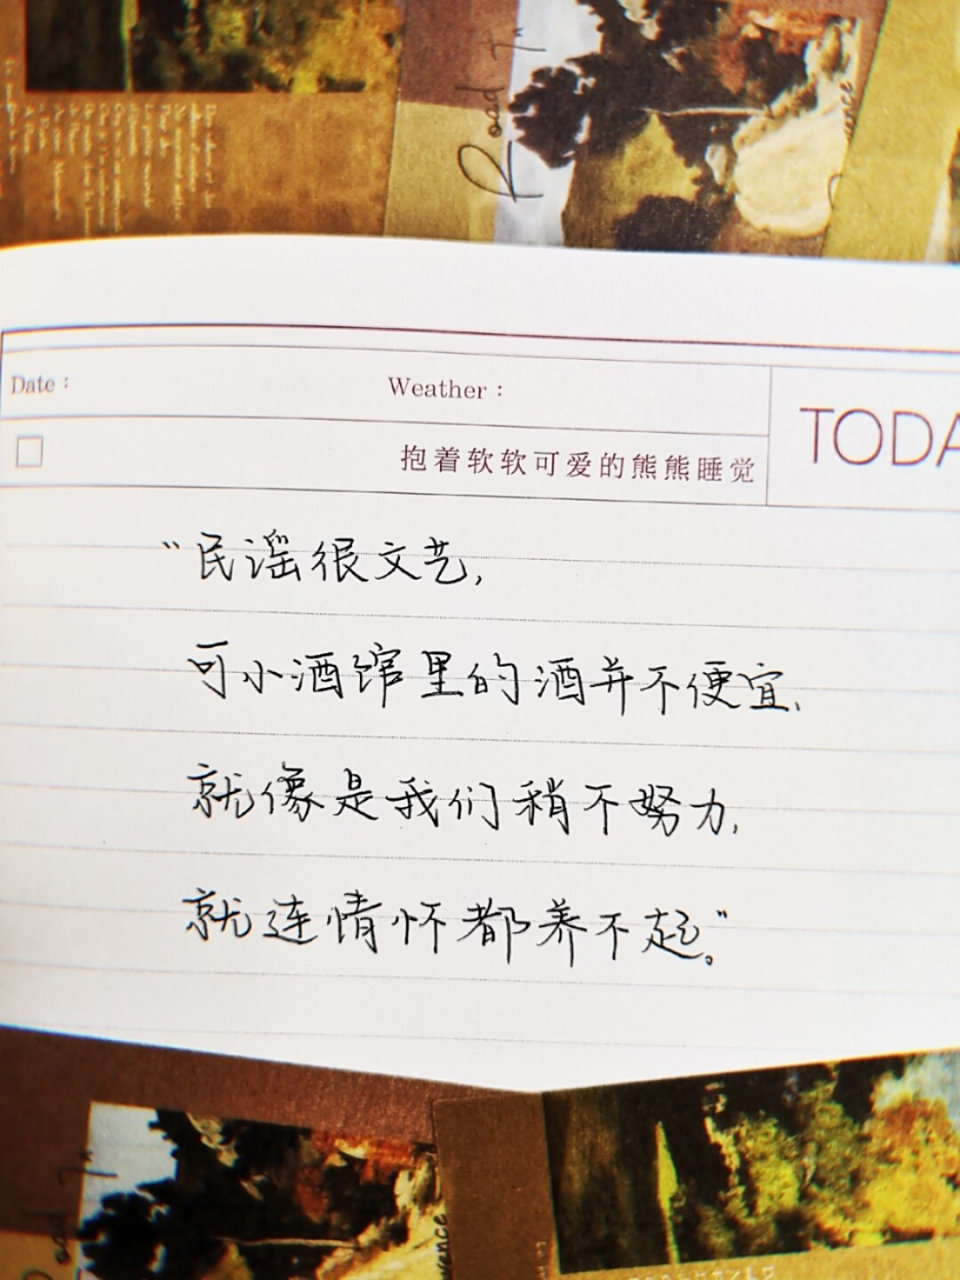 Road
Date：
Weather：
TODA
抱着软软可爱的熊熊睡觉
“民谣很文艺,
可小酒馆里的酒并不便宜,
就像是我们稍不努力,
就连情怀都养不起。”